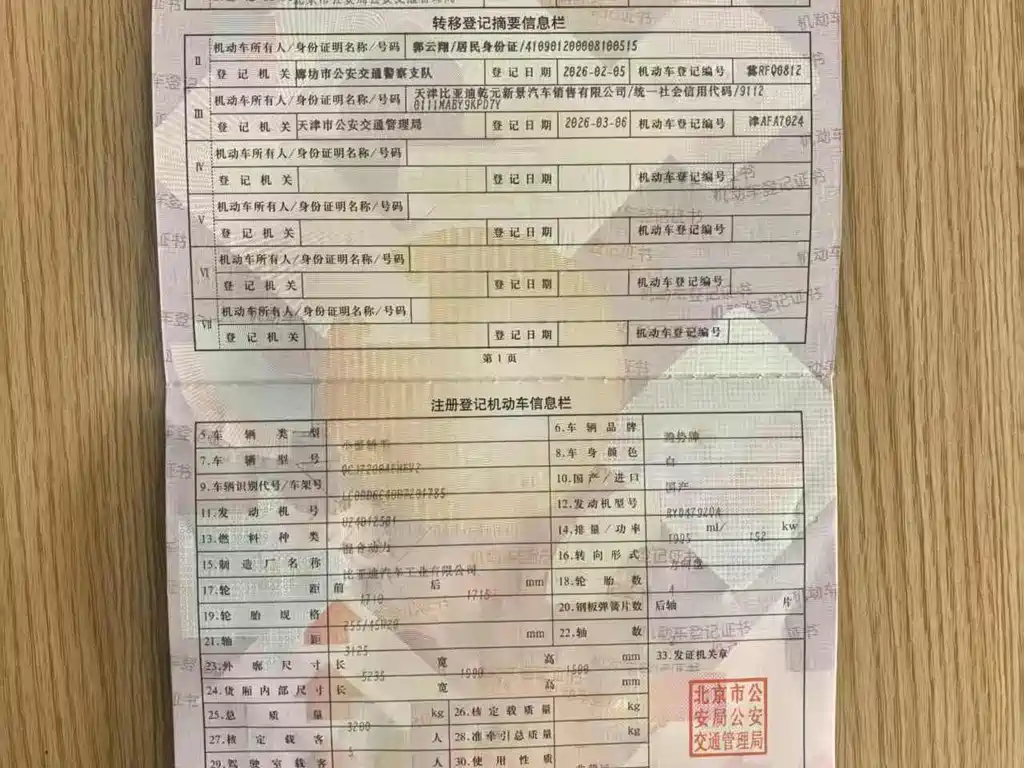 转移登记摘要信息栏
Ⅱ 机动车所有人/身份证明名称/号码 郭云翔/居民身份证/410901200008100515
登记机关 廊坊市公安交通警察支队 登记日期 2026-02-05 机动车登记编号 冀RFQ0812
Ⅲ 机动车所有人/身份证明名称/号码 天津比亚迪乾元新景汽车销售有限公司/统一社会信用代码/9112
0111MABY9KPD7Y
登记机关 天津市公安交通管理局 登记日期 2026-03-06 机动车登记编号 津AFA7024
Ⅳ 机动车所有人/身份证明名称/号码
登记机关 登记日期 机动车登记编号
Ⅴ 机动车所有人/身份证明名称/号码
登记机关 登记日期 机动车登记编号
Ⅵ 机动车所有人/身份证明名称/号码
登记机关 登记日期 机动车登记编号
Ⅶ 机动车所有人/身份证明名称/号码
登记机关 登记日期 机动车登记编号
第1页
注册登记机动车信息栏
5.车辆类型 6.车辆品牌
7.车辆型号 8.车身颜色 白
9.车辆识别代号/车架号 10.国产/进口 国产
11.发动机号 12.发动机型号
13.燃料种类 混合动力 14.排量/功率 1995 ml/ 152 kw
15.制造厂名称 比亚迪汽车工业有限公司 16.转向形式 方向盘
17.轮距 前 1710 后 1715 mm 18.轮胎数 4
19.轮胎规格 255/45R20 20.钢板弹簧片数 后轴 片
21.轴距 3125 mm 22.轴数
23.外廓尺寸 长 5235 宽 1990 高 mm 33.发证机关章
24.货厢内部尺寸 长 宽 高 mm
25.总质量 3200 kg 26.核定载质量 kg
27.核定载客 5 人 28.准牵引总质量 kg
29.驾驶室载客 人 30.使用性质
北京市公
安局公安
交通管理局